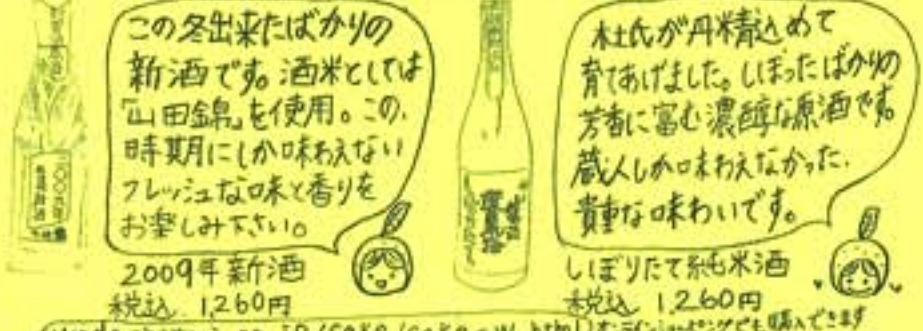 この冬出来たばかりの
新酒です。酒米としては
「山田錦」を使用。この、
時期にしか味わえない
フレッシュな味と香りを
お楽しみ下さい。
2009年新酒
税込 1,260円
杜氏が丹精込めて
育てあげました。しぼったばかりの
芳香に富む濃醇な原酒です。
蔵人しか味わえなかった、
貴重な味わいです。
しぼりたて純米酒
税込 1,260円
オンラインショッピングでも購入できます